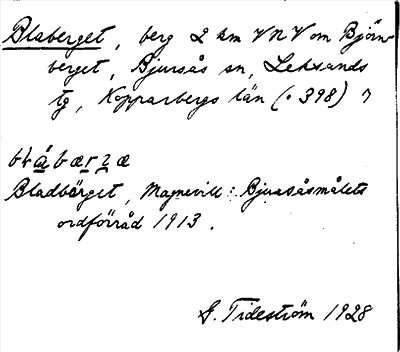 Blaberget, berg 2 km VNV om Björn-
berget, Bjursås sn, Leksands
tg, Kopparbergs län (· 398)
Bladbärget, Magnevill: Bjursåsmålets
ordförråd 1913.
G. Tideström 1928